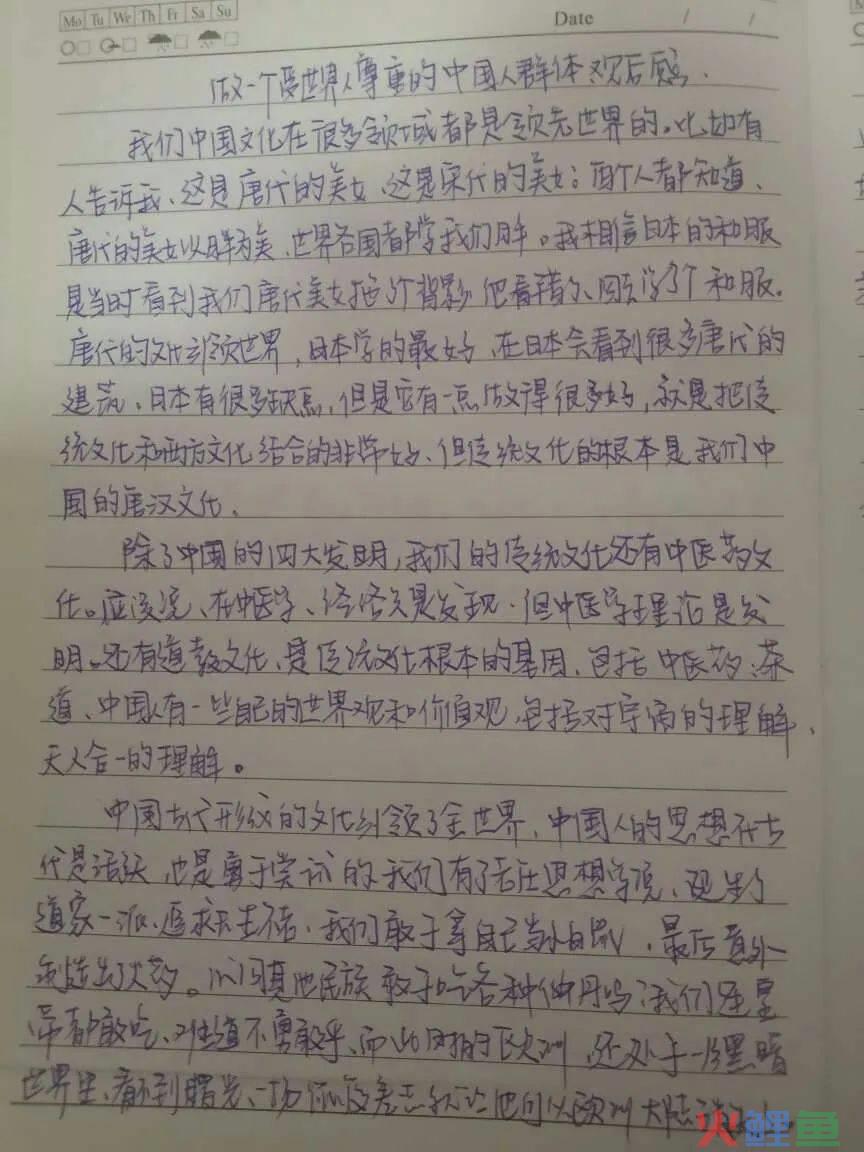 Mo Tu We Th Fr Sa Su
Date / /
做一个受世界人尊重的中国人群体观后感.
我们中国文化在很多领域都是领先世界的。比如有
人告诉我、这是唐代的美女、这是宋代的美女;百个人都知道、
唐代的美女以胖为美、世界各国都学我们胖。我相信日本的和服
是当时看到我们唐代美女 个背影 他看错了、回去学了个和服.
唐代的文化引领世界,日本学的最好、在日本会看到很多唐代的
建筑、日本有很多缺点,但是它有一点做得很多好,就是把传
统文化和西方文化结合的非常好、但传统文化的根本是我们中
国的唐汉文化、
除了中国的四大发明,我们的传统文化还有中医药文
化。应该说、在中医学、经络只是发现·但中医学理论是发
明。还有道教文化、是传统文化根本的基因、包括中医药、茶
道、中国人有一些自己的世界观和价值观,包括对宇宙的理解、
天人合一的理解。
中国古代形成的文化引领了全世界、中国人的思想在古
代是活跃、也是勇于尝试的 我们有了老庄思想学说、诞生了
道家一派、追求长生不老、我们敢于拿自己当小白鼠、最后意外
制造出了火药。 问其他民族敢于吃各种仙丹吗?我们连皇
帝都敢吃、 不勇敢乎、而此时的欧洲、还处于一片黑暗
世界里、看不到曙光、 欧洲大陆
火鲤鱼